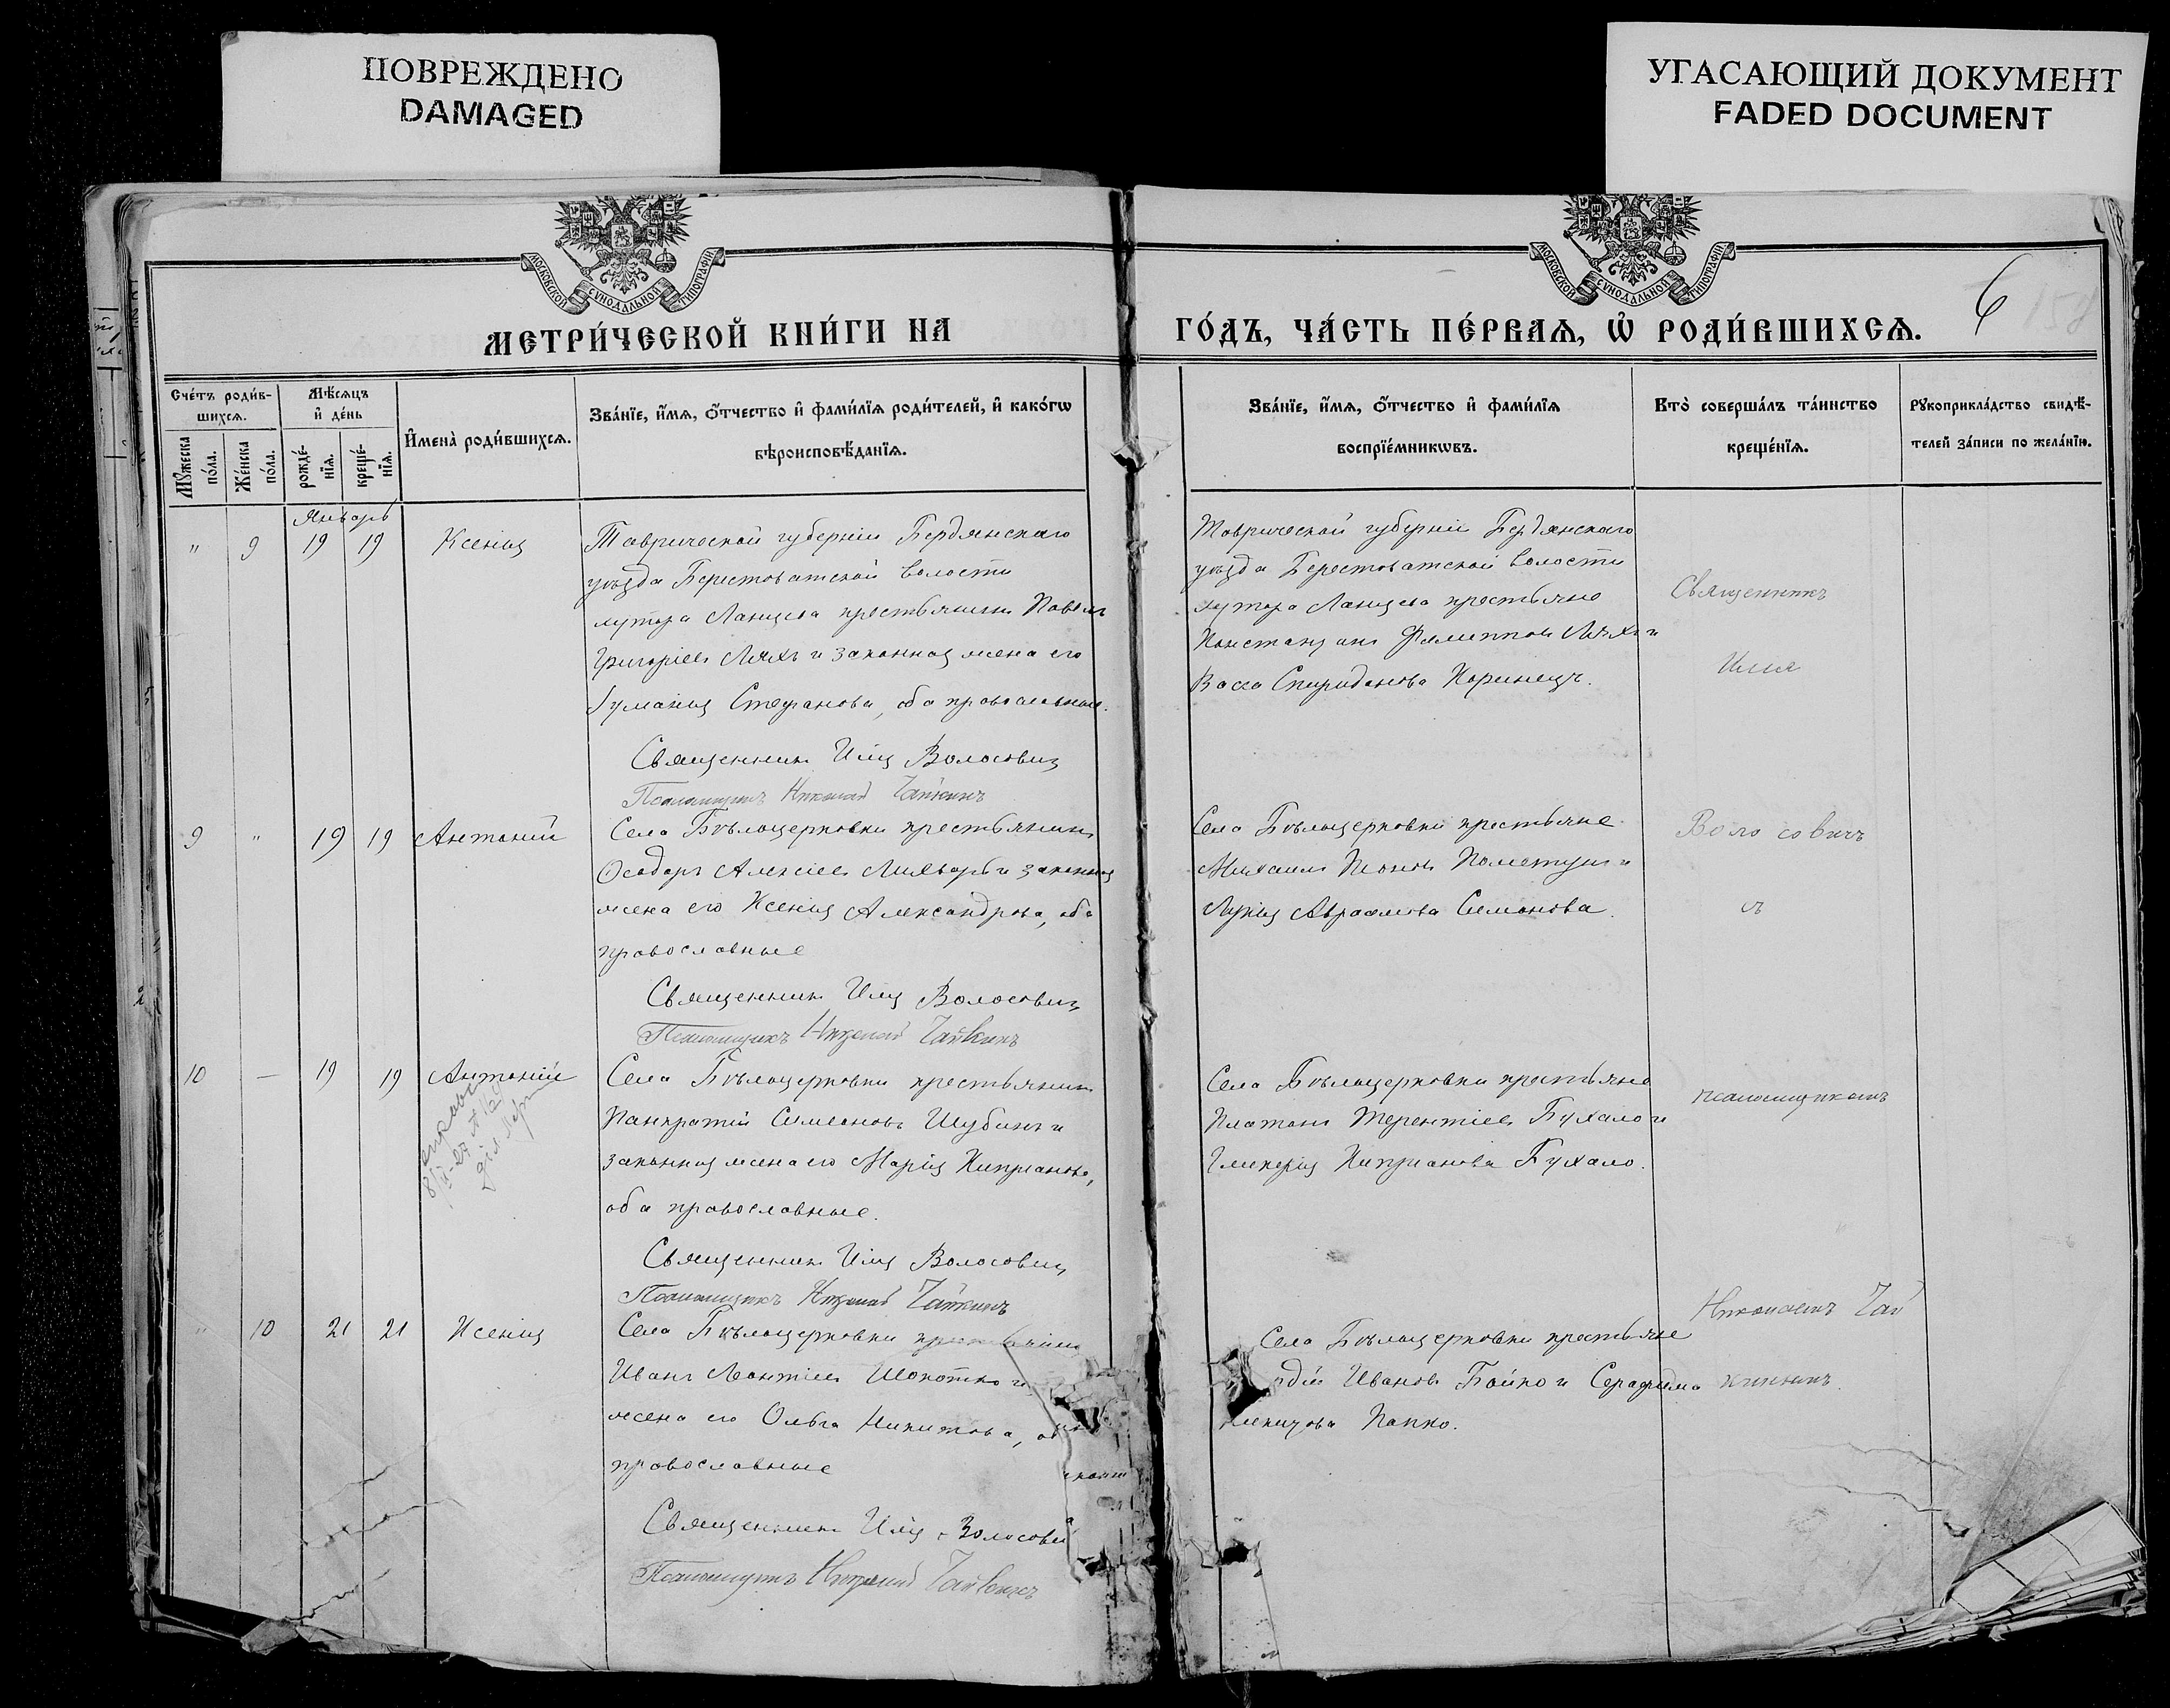 ПОВРЕЖДЕНО
DAMAGED
УГАСАЮЩИЙ ДОКУМЕНТ
FADED DOCUMENT
МОСКОВСКОЙ СѴНОДАЛЬНОЙ ТИПОГРАФІИ
МОСКОВСКОЙ СѴНОДАЛЬНОЙ ТИПОГРАФІИ
6
МЕТРИ́ЧЕСКОЙ КНИ́ГИ НА
ГО́ДЪ, ЧА́СТЬ ПЕ́РВАЯ, Ѡ҆ РОДИ́ВШИХСЯ.
Сче́тъ роди́в-
шихсѧ.
Мꙋ́жеска по́ла.
Же́нска по́ла.
Мѣ́сѧцъ
и҆ де́нь
рожде́-
нїѧ.
креще́-
нїѧ.
И҆мена̀ роди́вшихсѧ.
Зва́нїе, и҆́мѧ, ѻ҆́тчество и҆ фами́лїѧ роди́телей, и҆ како́гѡ
вѣроисповѣ́данїѧ.
Зва́нїе, и҆́мѧ, ѻ҆́тчество и҆ фами́лїѧ
воспрїе́мникѡвъ.
Кто̀ соверша́лъ та́инство
креще́нїѧ.
Рꙋкоприкла́дство свидѣ́-
телей за́писи по жела́нїю.
Январь
" 9 19 19 Ксенія
Таврической губерніи Бердянскаго
уѣзда Берестоватской волости
хутора Ланцева крестьянинъ Павелъ
Григоріевъ Ляхъ и законная жена его
Стефанова, оба православные.
Священникъ Илія Волосовичъ
Псаломщикъ Николай Чайкинъ
Таврической губерніи Бердянскаго
уѣзда Берестоватской волости
хутора Ланцева крестьяне
Филипповъ Ляхъ и
Васса Спиридонова Коринецъ.
Священникъ
Илія
9 " 19 19 Антоній
Села Бѣлоцерковки крестьянинъ
Ѳеодоръ Алексіевъ и законная
жена его Ксенія Александрова, оба
православные
Священникъ Илія Волосовичъ
Псаломщикъ Николай Чайкинъ
Села Бѣлоцерковки крестьяне
Михаилъ и
Лукія Авраамова Семонова.
Волосовичъ
съ
10 — 19 19 Антоній
Села Бѣлоцерковки крестьянинъ
Панкратій Симеоновъ Шубинъ и
законная жена его Марія Кипріанова,
оба православные.
Священникъ Илія Волосовичъ
Псаломщикъ Николай Чайкинъ
Села Бѣлоцерковки крестьяне
Платонъ Терентіевъ Бухало и
Гликерія Кипріанова Бухало.
псаломщикомъ
" 10 21 21 Ксенія
Села Бѣлоцерковки крестьянинъ
Иванъ Леонтіевъ Шокотко и
жена его Ольга Никитова, об
православные
Священникъ Илія Волосови
Псаломщикъ Николай Чайкинъ
Села Бѣлоцерковки крестьяне
рдій Ивановъ Бойко и Серафима
Папко.
Николаемъ Чай
кинымъ